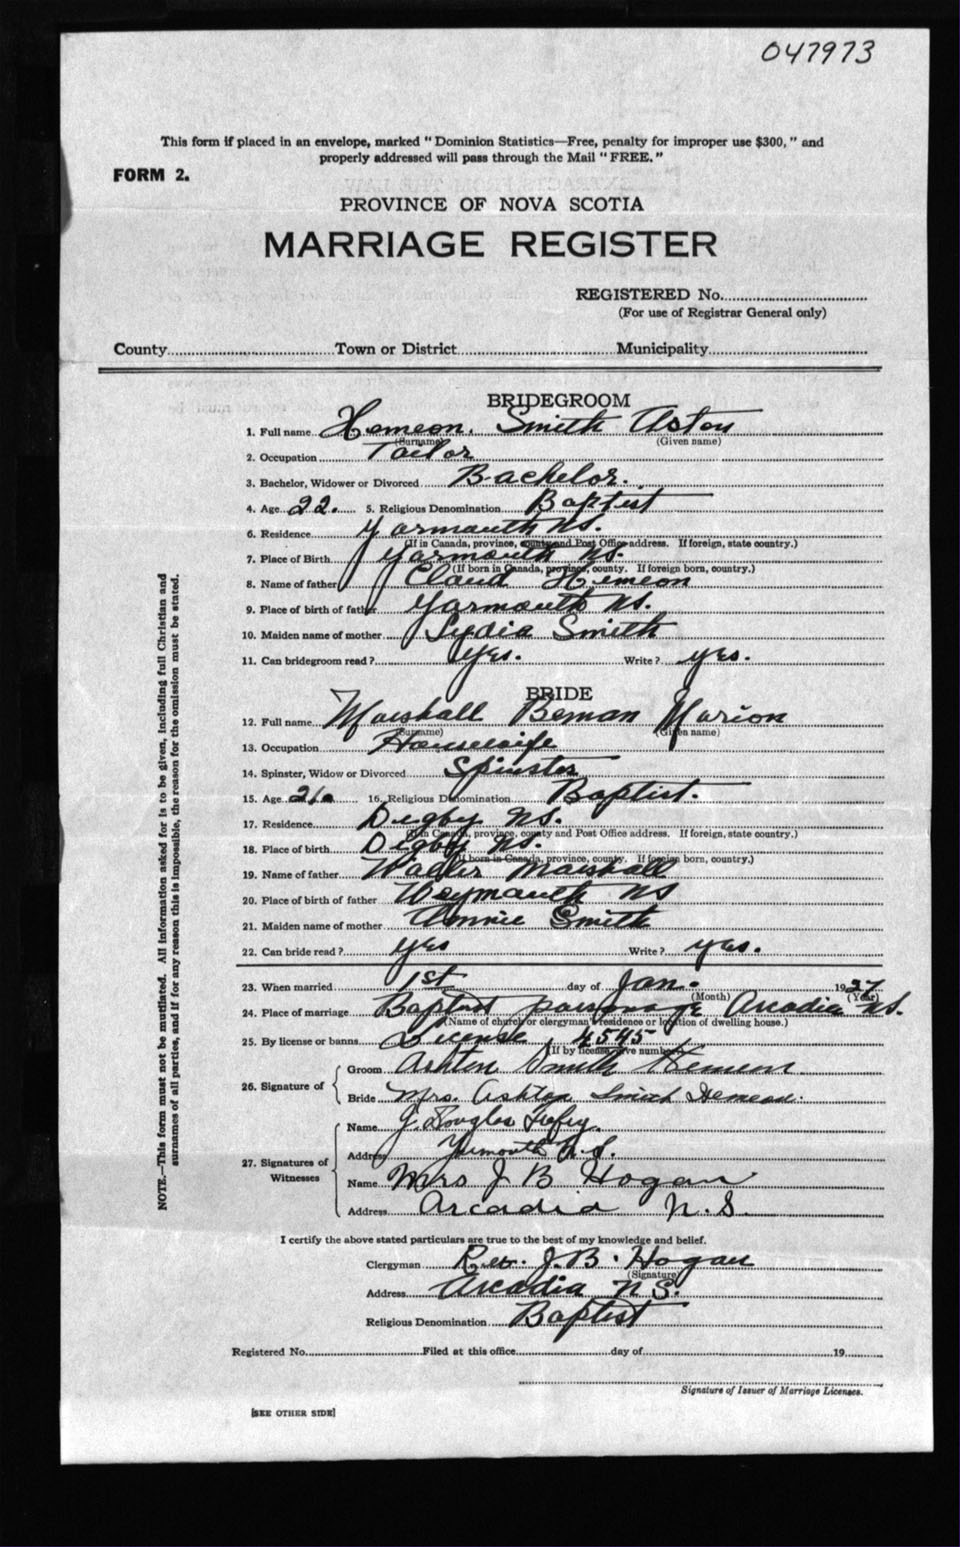 047973
This form if placed in an envelope, marked " Dominion Statistics—Free, penalty for improper use $300, " and
properly addressed will pass through the Mail " FREE. "
FORM 2.
PROVINCE OF NOVA SCOTIA
MARRIAGE REGISTER
REGISTERED No.
(For use of Registrar General only)
County Town or District Municipality
BRIDEGROOM
1. Full name Hemeon. Smith Aston
(Surname) (Given name)
2. Occupation Tailor
3. Bachelor, Widower or Divorced Bachelor.
4. Age 22. 5. Religious Denomination Baptist
6. Residence Yarmouth NS.
(If in Canada, province, county and Post Office address. If foreign, state country.)
7. Place of Birth Yarmouth NS.
(If born in Canada, province, county. If foreign born, country.)
8. Name of father Claud Hemeon
9. Place of birth of father Yarmouth NS.
10. Maiden name of mother Lydia Smith
11. Can bridegroom read ? Yes. Write ? yes.
BRIDE
12. Full name Marshall Beman Marion
(Surname) (Given name)
13. Occupation Housewife
14. Spinster, Widow or Divorced Spinster
15. Age 16. Religious Denomination Baptist.
17. Residence Digby NS.
(If in Canada, province, county and Post Office address. If foreign, state country.)
18. Place of birth Digby NS.
(If born in Canada, province, county. If foreign born, country.)
19. Name of father Marshall
20. Place of birth of father Weymouth NS
21. Maiden name of mother Annie Smith
22. Can bride read ? yes Write ? yes.
23. When married 1st day of Jan. 1927
(Month) (Year)
24. Place of marriage Baptist parsonage Arcadia NS.
(Name of church or clergyman's residence or location of dwelling house.)
25. By license or banns License 4545
(If by license give number)
26. Signature of Groom Ashton Smith Hemeon
Bride Mrs. Ashton Smith Hemeon.
27. Signatures of Witnesses
Name J. Douglas
Address Yarmouth N.S.
Name Mrs J B Hogan
Address Arcadia N.S.
I certify the above stated particulars are true to the best of my knowledge and belief.
Clergyman Rev. J. B. Hogan
(Signature)
Address Arcadia NS.
Religious Denomination Baptist
Registered No. Filed at this office day of 19
Signature of Issuer of Marriage Licenses.
[SEE OTHER SIDE]
NOTE.—This form must not be mutilated. All information asked for is to be given, including full Christian and
surnames of all parties, and if for any reason this is impossible, the reason for the omission must be stated.